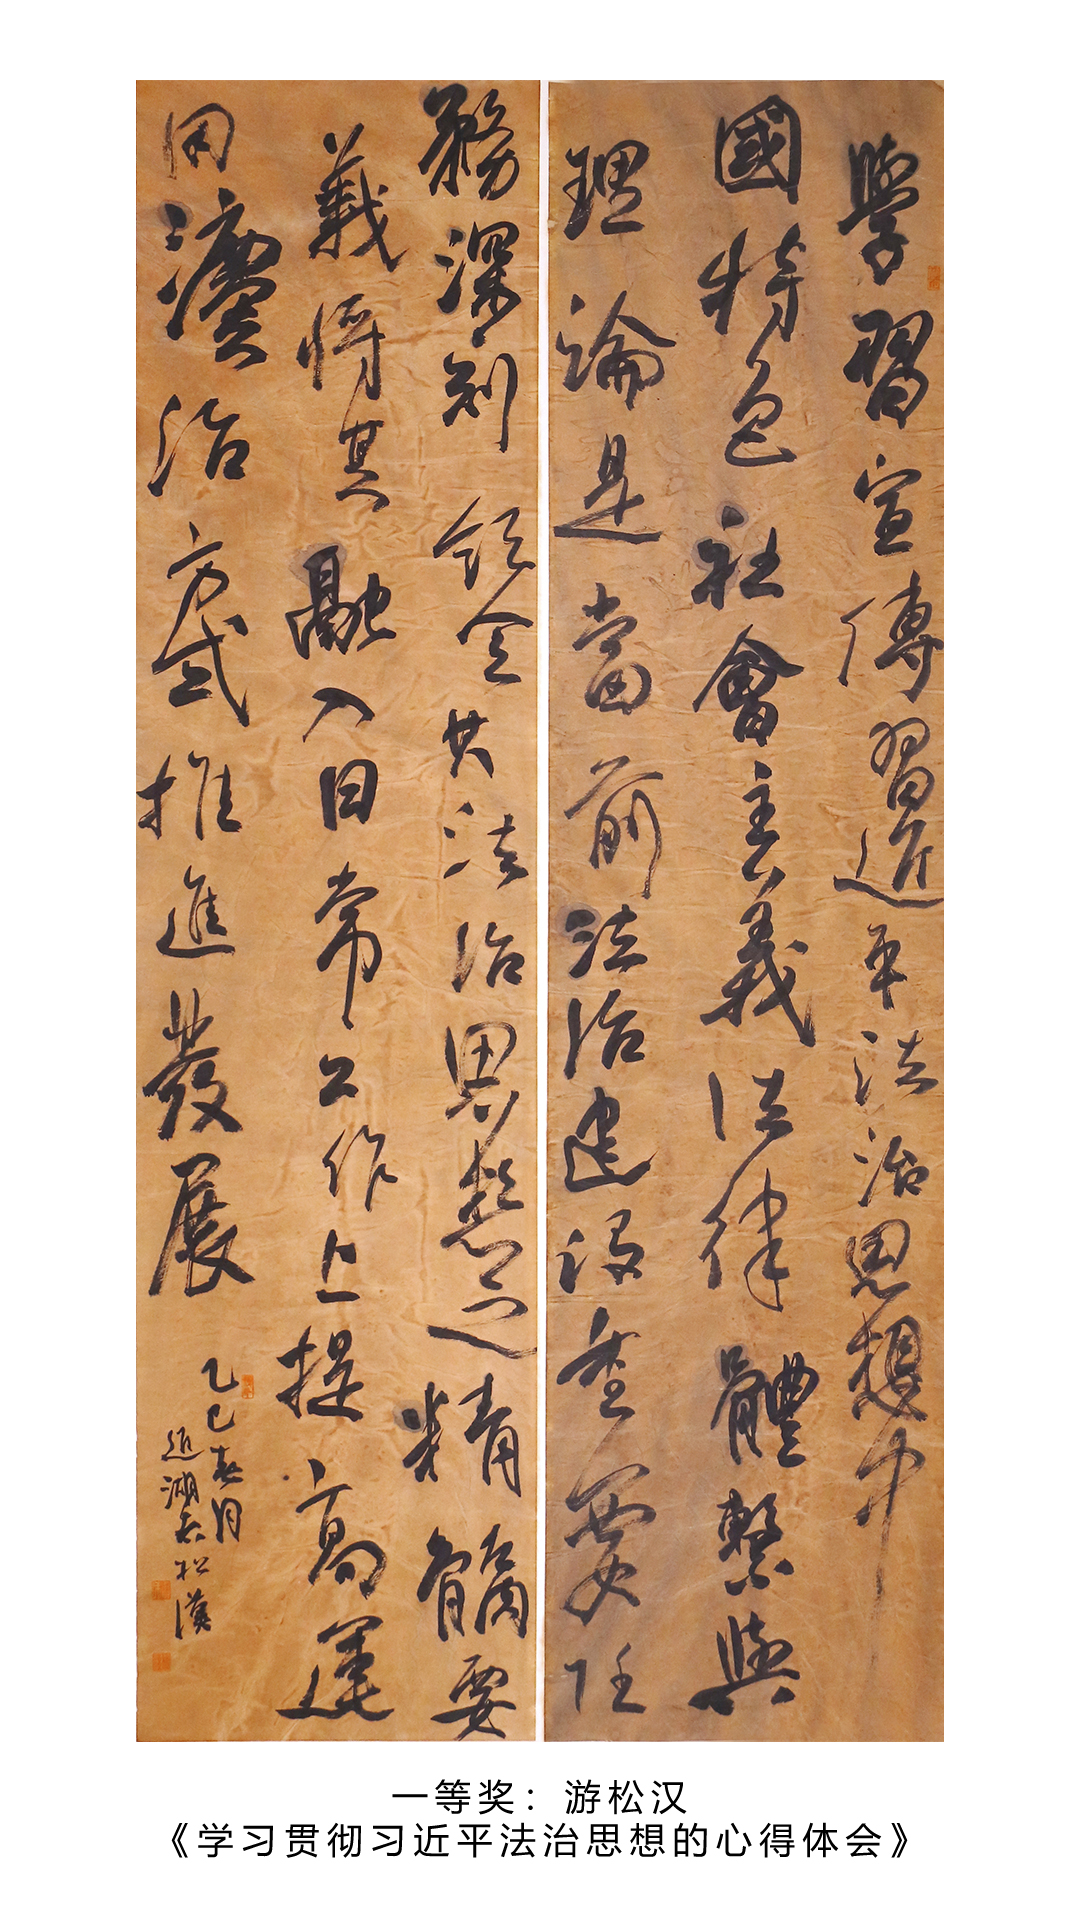 學習宣傳習近平法治思想中
國特色社會主義法律體繫與
理論是當前法治建設重要任
務深刻領會其法治思想之精髓要
義將其融入日常工作上提高運
用灋治方式推進發展
乙巳春月
湖松漢
一等奖：游松汉
《学习贯彻习近平法治思想的心得体会》